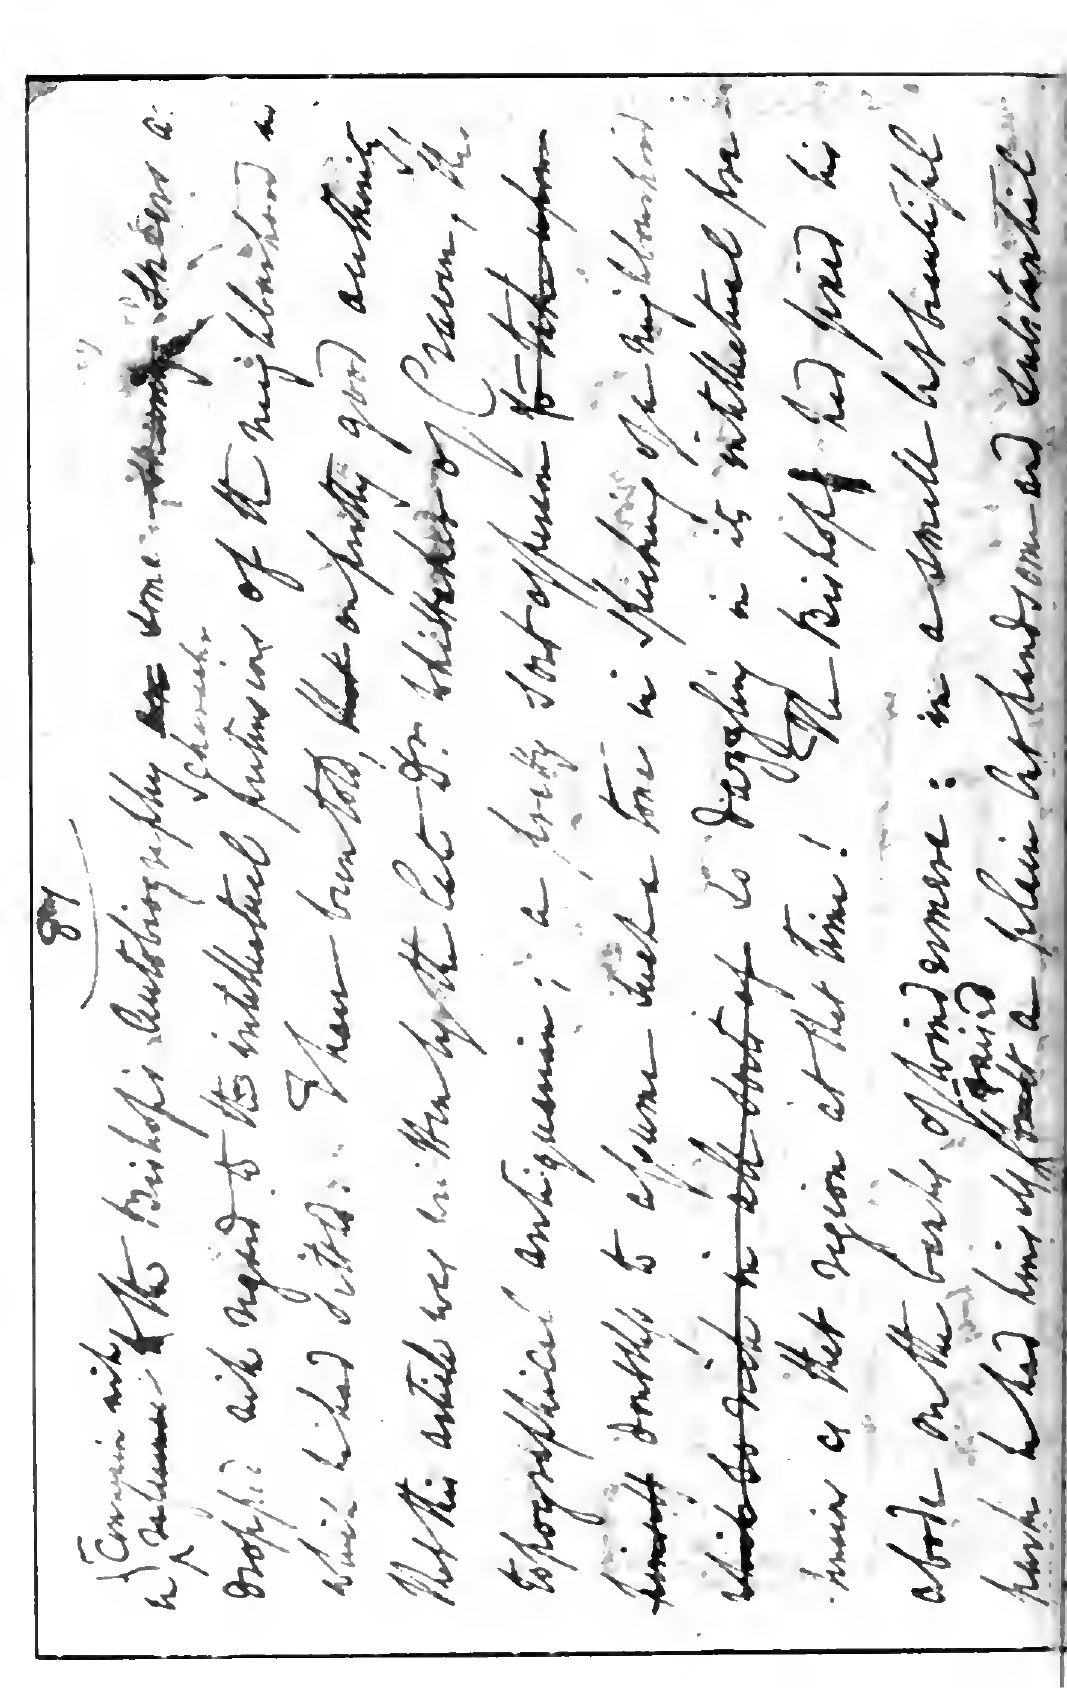 87
Connexion with
the Bishop's Autobiography some sneers a
character
dropped with regard to the intellectual pretensions of the neighbourhood in
which he had settled. I have been told, on pretty good authority
that this article was written by the late Dr. Whittaker of Craven, the
topographical antiquarian; a sort of person
doubtless to assume such a tone in speaking of a neighbourhood
so dazzling in its intellectual pre-
tensions as that region at that time!
The Bishop had fixed his
abode on the banks of Windermere: in a small but beautiful
park he had himself raised a plain but handsome and substantial